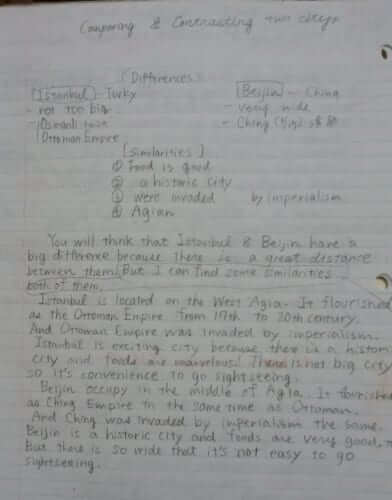 Comparing & Contrasting two citys
[Differences]
[Istanbul] - Turky
[Beijin] - China
- not too big
- very wide
- Osmanli
- Ching (Qing)
Ottoman Empire
[Similarities]
① Food is good
② a historic city
③ were invaded by imperialism
④ Agian
You will think that Istanbul & Beijin have a
big difference because there is a great distance
between them. But I can find some similarities
both of them.
Istanbul is located on the West Agia. It flourished
as the Ottoman Empire from 17th to 20th century.
And Ottoman Empire was invaded by imperialism.
Istanbul is exciting city because there is a histori
city and foods are marvelous! There is not big city
so it's convenience to go sightseeing.
Beijin occupy in the middle of Agia. It flourished
as Ching Empire in the same time as Ottoman.
And Ching was invaded by imperialism the same.
Beijin is a historic city and foods are very good,
But there is so wide that it's not easy to go
sightseeing.